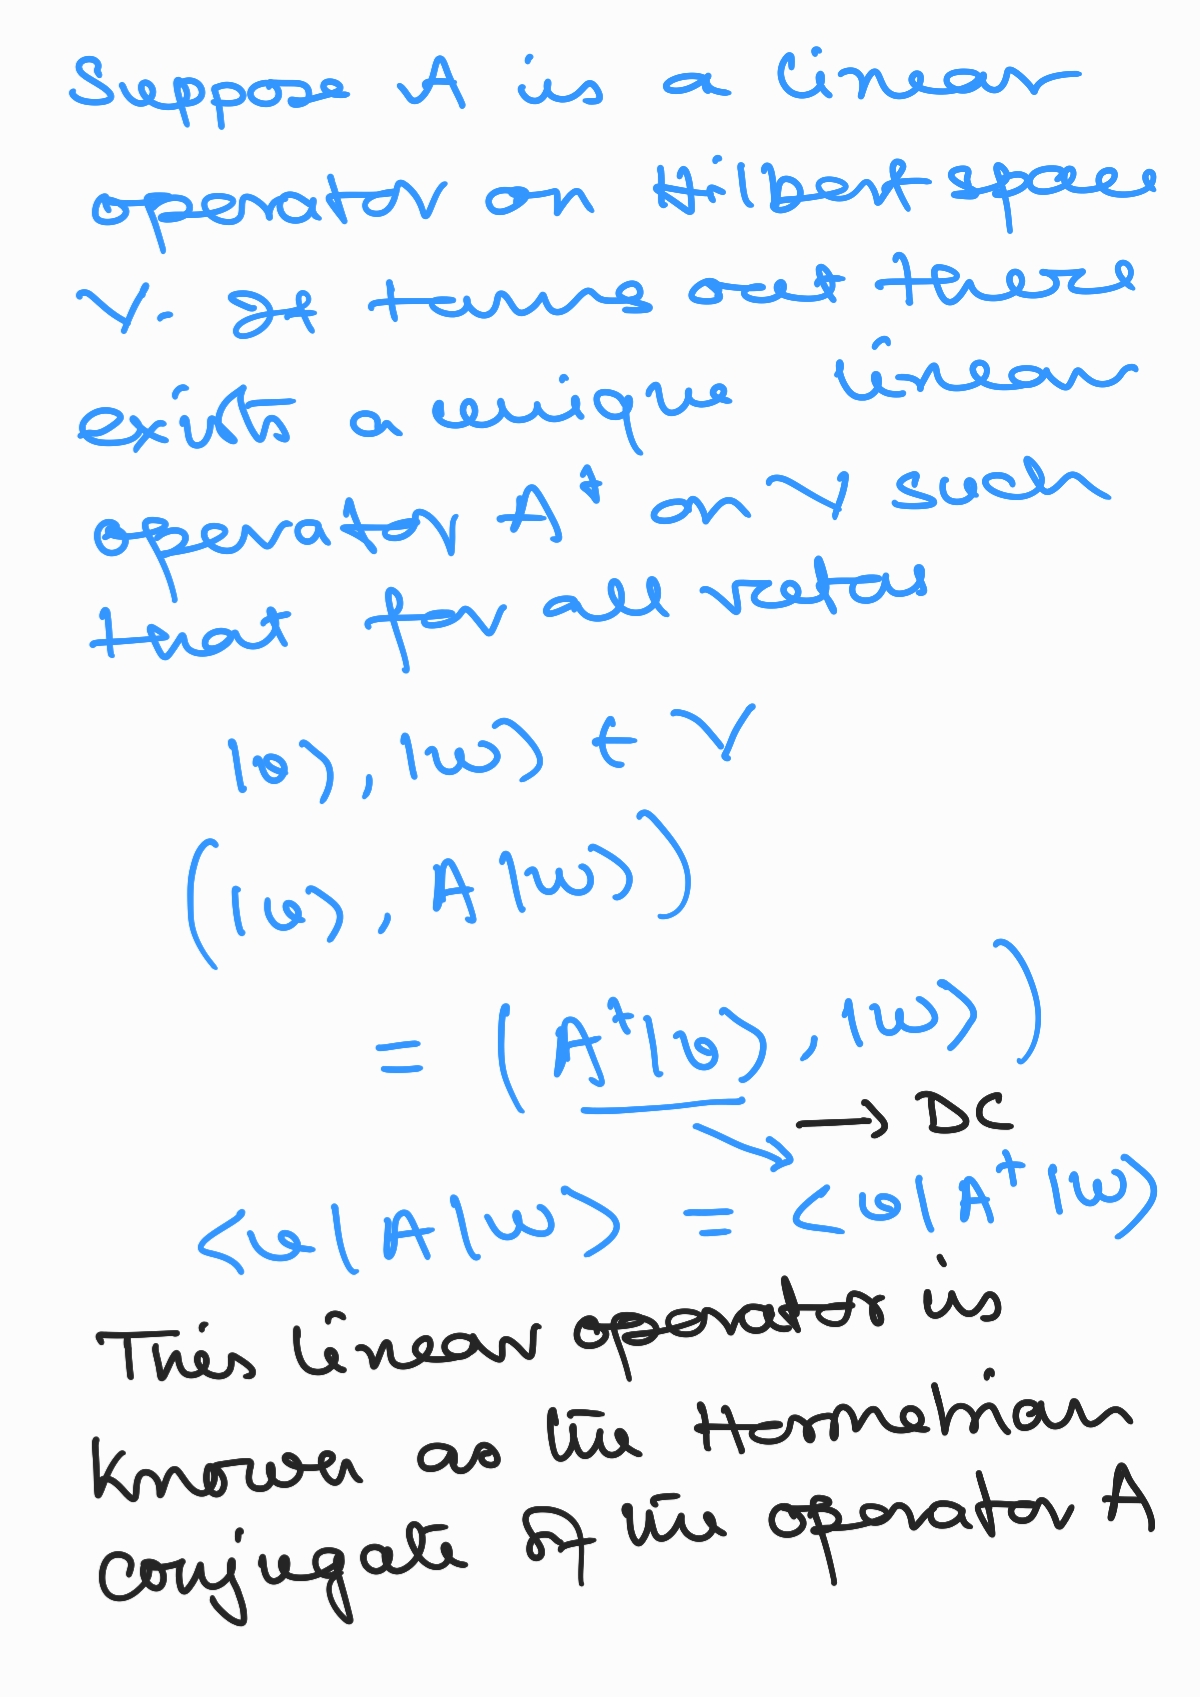 Suppose A is a linear
operator on Hilbert space
V. It turns out there
exists a unique linear
operator A† on V such
that for all vectors
|v⟩, |w⟩ ∈ V
(|v⟩, A|w⟩)
= (A†|v⟩, |w⟩)
→ DC
<v|A|w> = <v|A†|w>
This linear operator is
known as the Hermetian
conjugate of the operator A